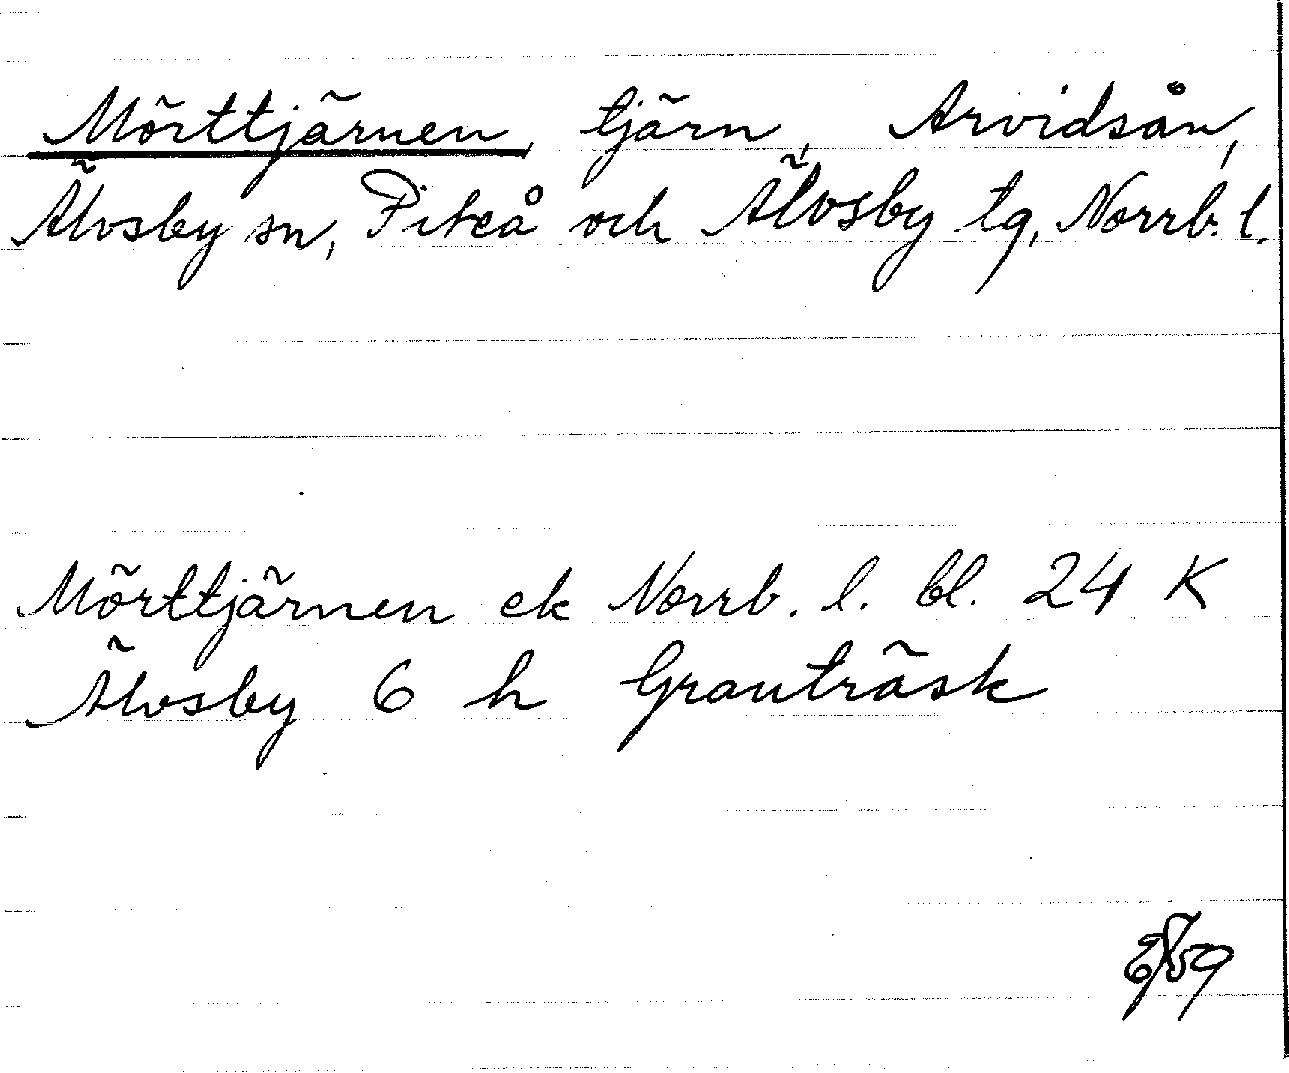 Mörttjärnen, tjärn, Arvidsån,
Älvsby sn, Piteå och Älvsby tg, Norrb. l.
Mörttjärnen ek Norrb. l. bl. 24 K
Älvsby 6 h Granträsk